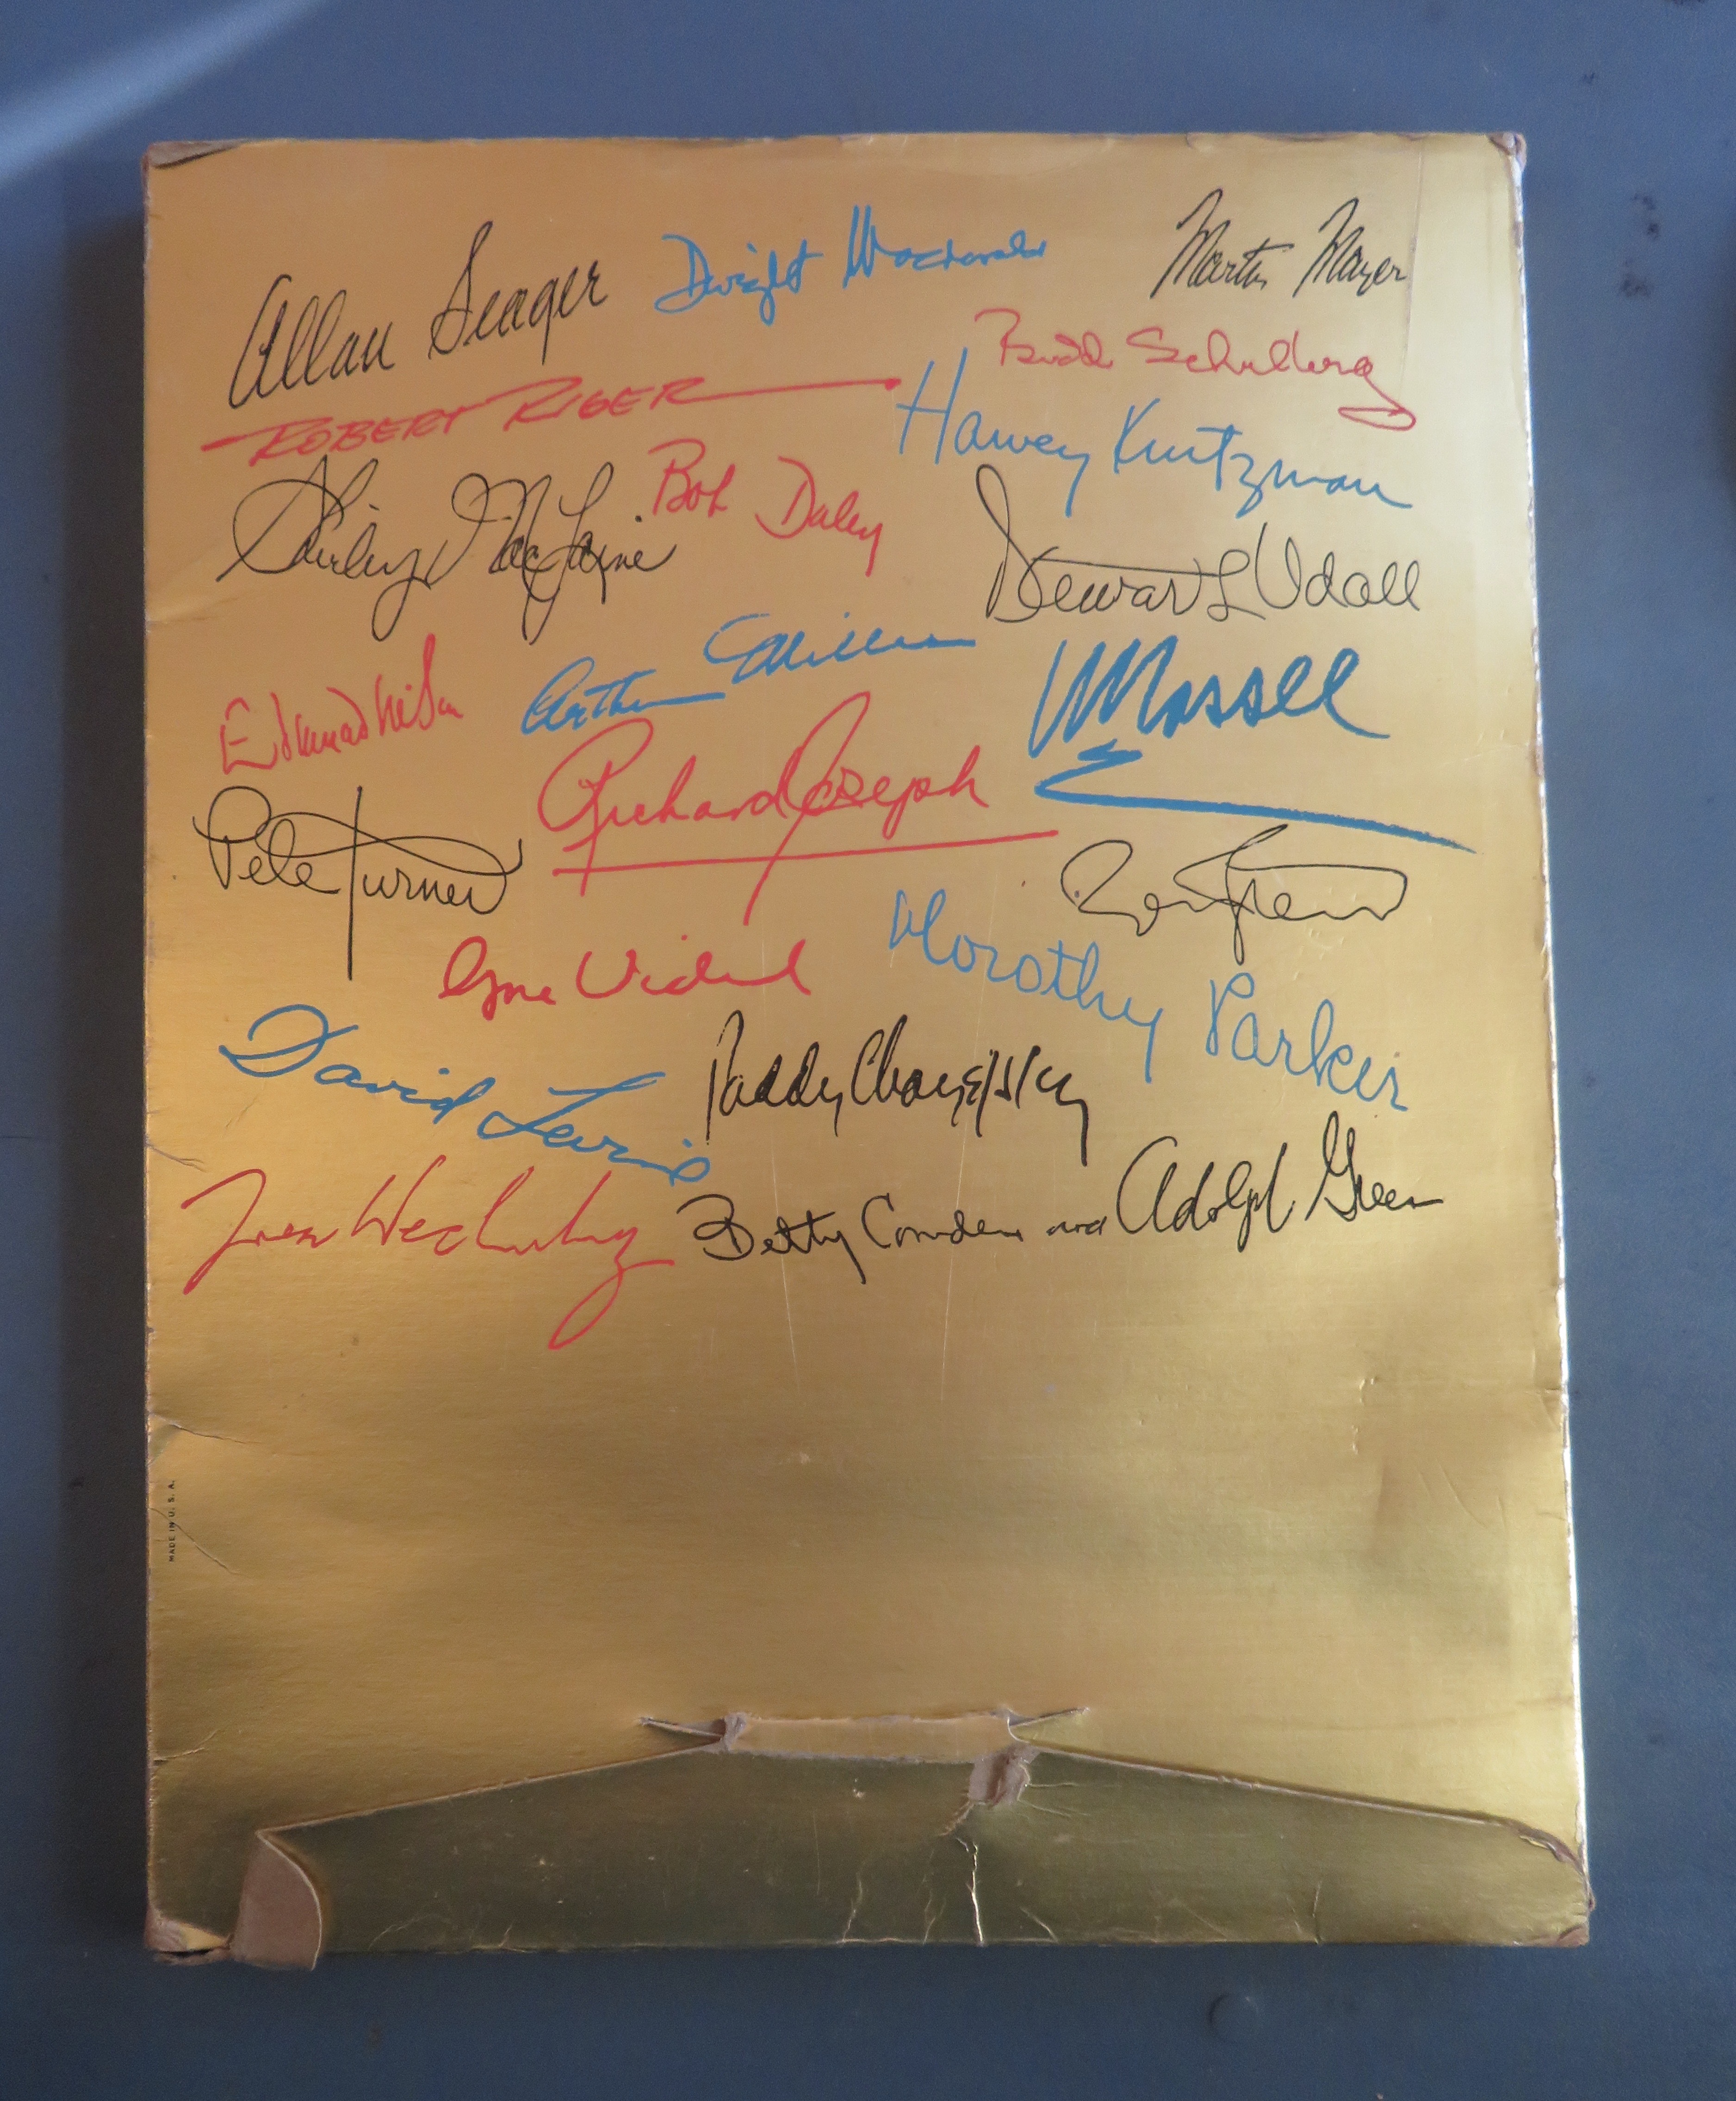 Allan Seager
Dwight Macdonald
Martin Mayer
Budd Schulberg
ROBERT RIGER
Harvey Kurtzman
Shirley MacLaine
Bob Daley
Stewart L Udall
Edmund Wilson
Arthur Miller
Richard Joseph
Pete Turner
Gore Vidal
Dorothy Parker
David Levine
Paddy Chayefsky
Betty Comden and Adolph Green
MADE IN U.S.A.